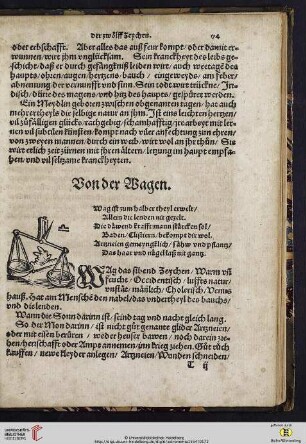 der zwölff Zeychen. 74
oder erbschafft. Aber alles das auß sein kompt/ oder damit er-
wunnen/ wirt jhm vnglücksam. Sein kranckheyt des leibs ge-
schicht/ daß er durch gefängknuß leiden wirt/ auch weetagẽ des
haupts/ ohren/ augen/ hertzens/ bauch/ eingeweyds/ am feber/
abnemung der vernunfft vnd sinn. Sein todt wirt
haupts/ gespüret werden.
Ein Meydlin geboren zwischen obgenanten tagen/ hat auch
mehrertheyls die selbige natur an jhm. Ist eins leichten hertzen/
zufälligen glücks/ rachgebig/ schamhafftig/ arbeyt mit ler-
nen vil subtilen künsten/ kompt nach viler anfechtung zun ehren/
von zweyen mannen/ durch ein weib/ wirt wol an jhr thůn/ Sie
wirt etlich zeit zürnen mit jhren ältern/ letzung im haupt empfa-
hen/ vnd vil seltzame kranckheyten.
Von der Wagen.
Wag ist zum halber theyl erwelt/
Allein die lenden nit gezelt.
Die däwend krafft mann stärcken sol/
Baden/ Clistiern/ bekompt dir wol.
Artzneien gemeyngklich/ sähw vnd pflantz/
Das haar vnd nägel laß nit gantz.
Wag das sibend Zeychen/ Warm vñ
feucht/ Occidentisch/ luffts natur/
männlich/ Cholerisch/ Venus
hauß. Hat am Menschẽ den nabel/ das vndertheyl des bauchs/
vnd die lenden.
Wann die Sonn darinn ist/ seind tag vnd nacht gleich lang.
So der Mon darinn/ ist nicht gůt genante glider Artzneien/
oder mit eisen berüren/ weder heuser bawen/ noch darein zie-
hen/ herschafft oder Amps annemen/ inn krieg ziehen. Gůt tůch
kauffen/ newe kleyder anlegen/ Artzneien/ Wunden schneiden/
T ij